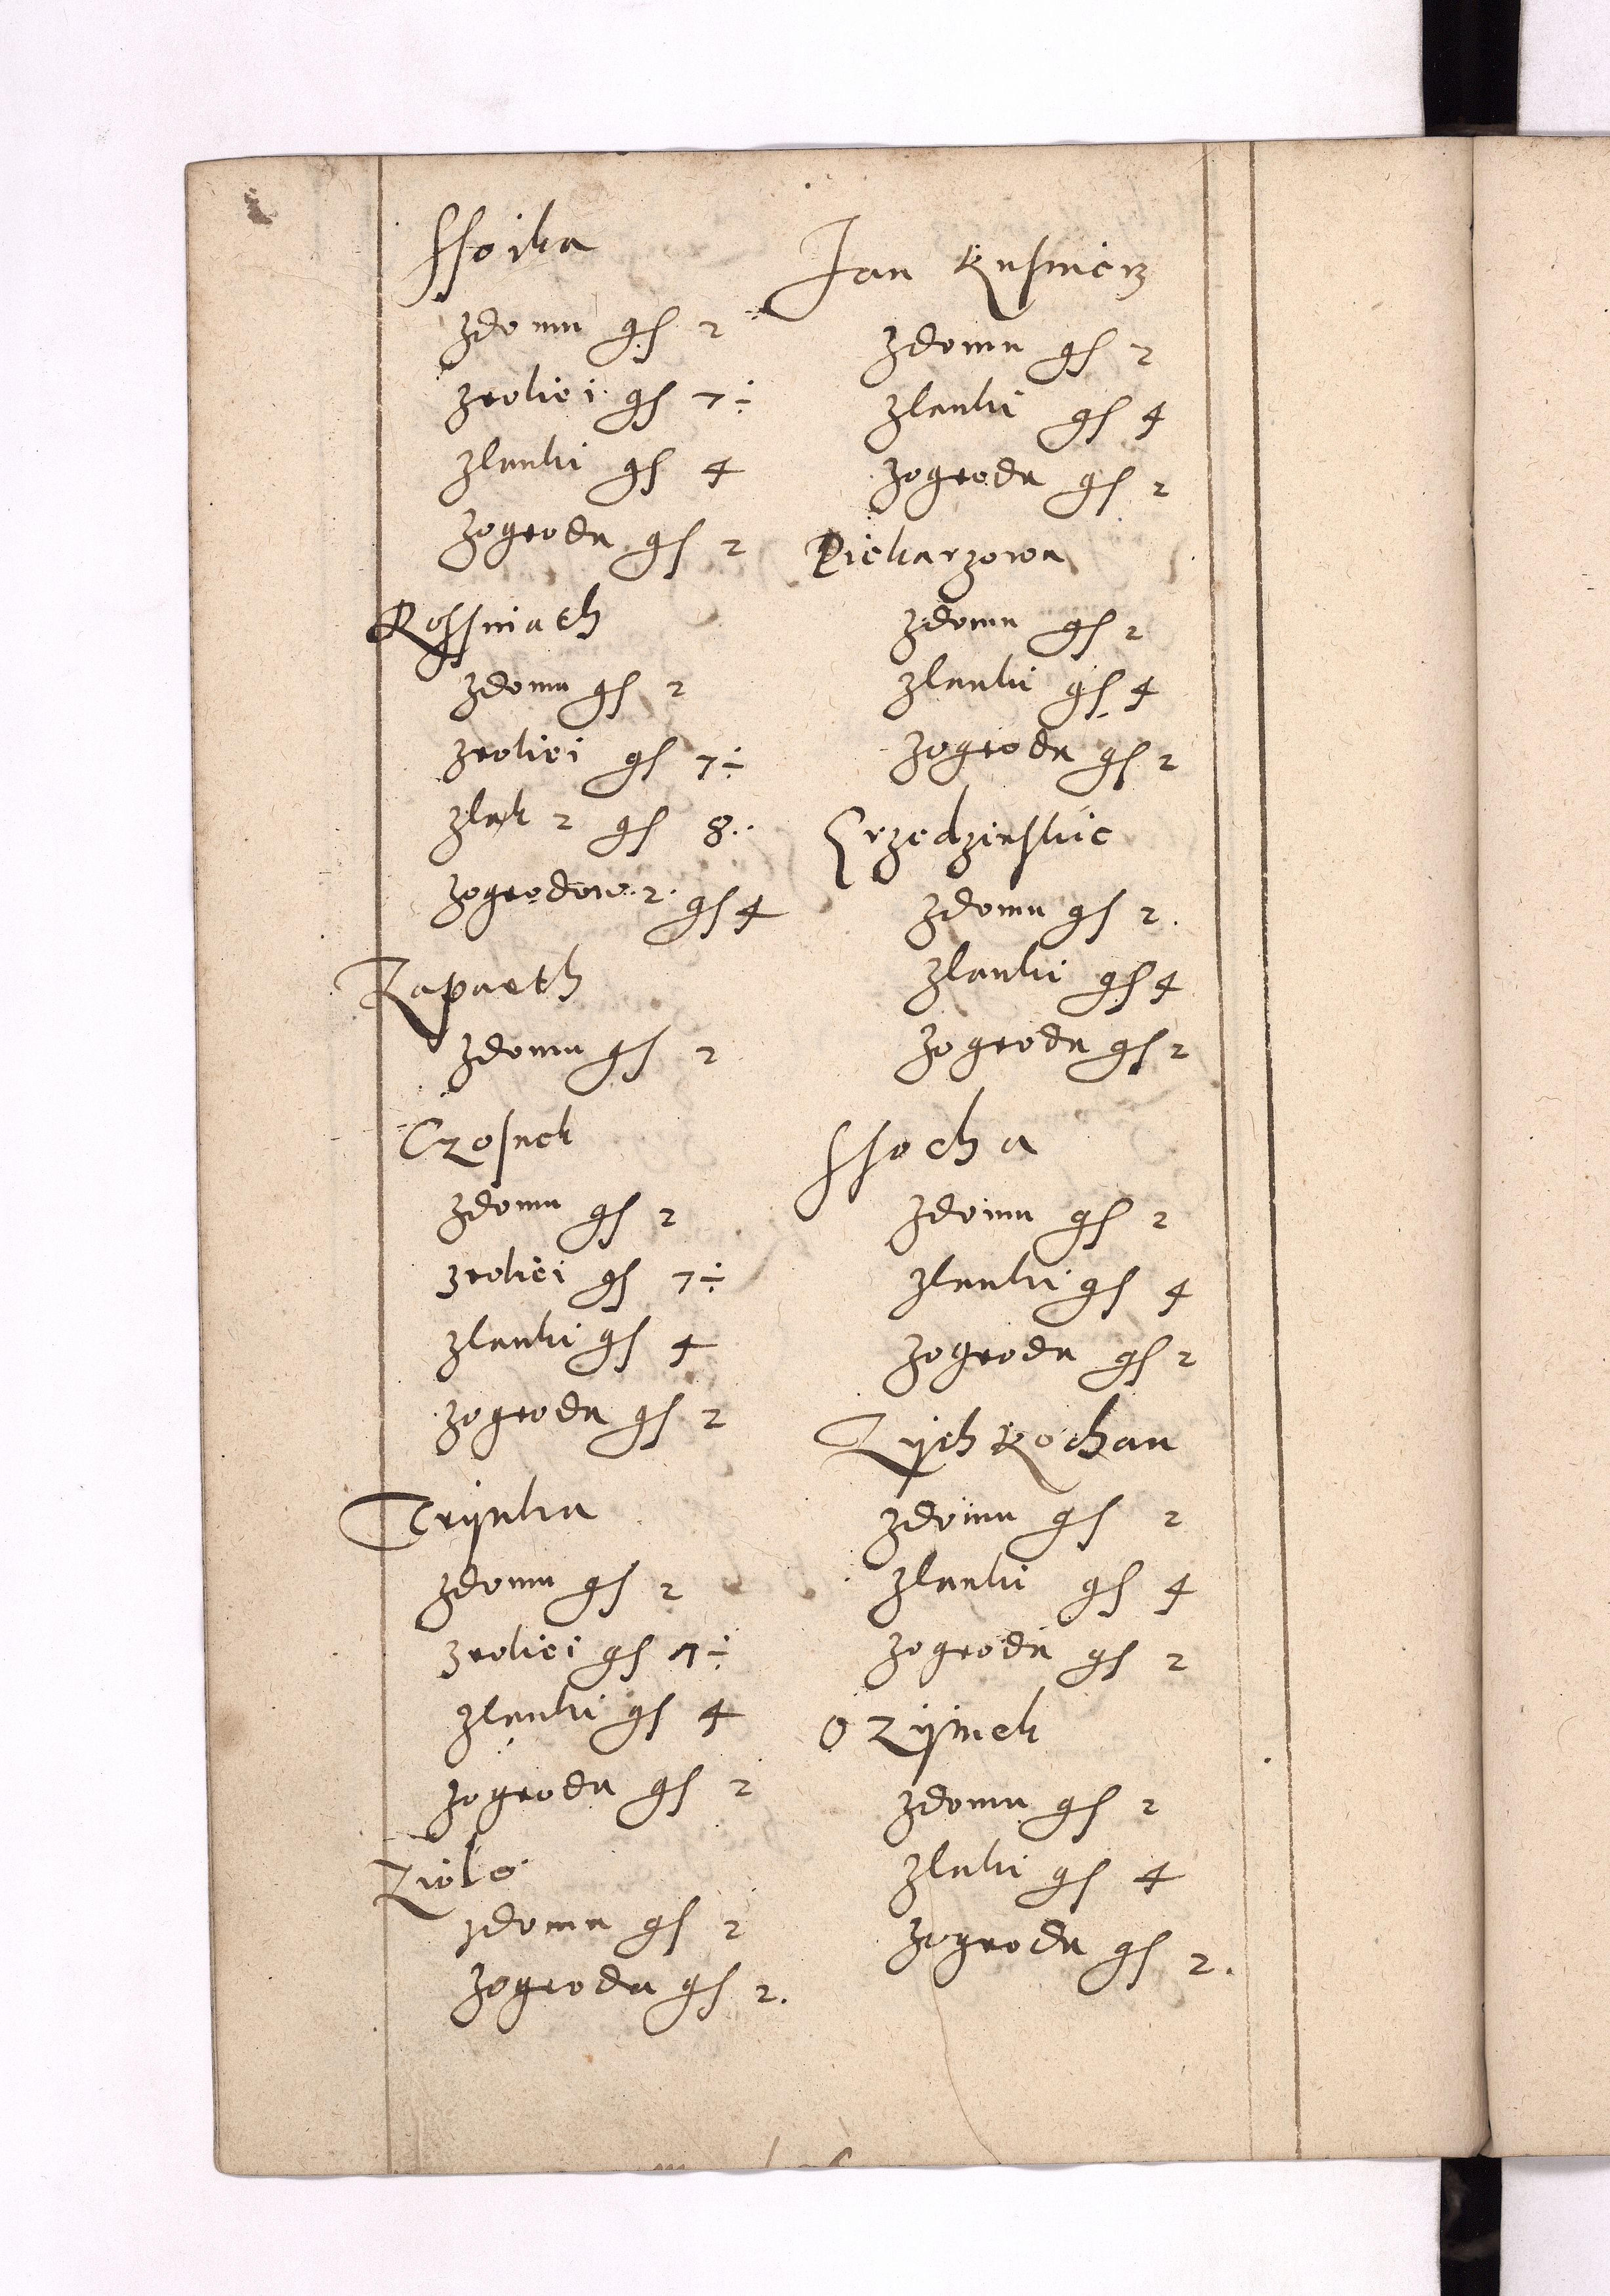 Ssoika
zdomu gs 2
zroliei gs 7 ÷
zlanki gs 4
zogroda gs 2
Kossmath
zdomu gs 2
zroliei gs 7 ÷
zlak 2 gs 8
zogrodow 2 gs 4
Lapaeth
zdomu gs 2
Czosnek
zdomu gs 2
zroliei gs 7 ÷
zlanki gs 4
zogroda gs 2
Trynka
zdomu gs 2
zroliei gs 7 ÷
zlanki gs 4
zogroda gs 2
Ziolo
zdomu gs 2
zogroda gs 2.
Jan Kusmierz
zdomu gs 2
zlanki gs 4
zogroda gs 2
Piekarzowa
zdomu gs 2
zlanki gs 4
zogroda gs 2
zdomu gs 2.
zlanki gs 4
zogroda gs 2
Ssocha
zdomu gs 2
zlanki gs 4
zogroda gs 2
Zych Kochan
zdomu gs 2
zlanki gs 4
zogroda gs 2
Ozymek
zdomu gs 2
zlaki gs 4
zogroda gs 2.